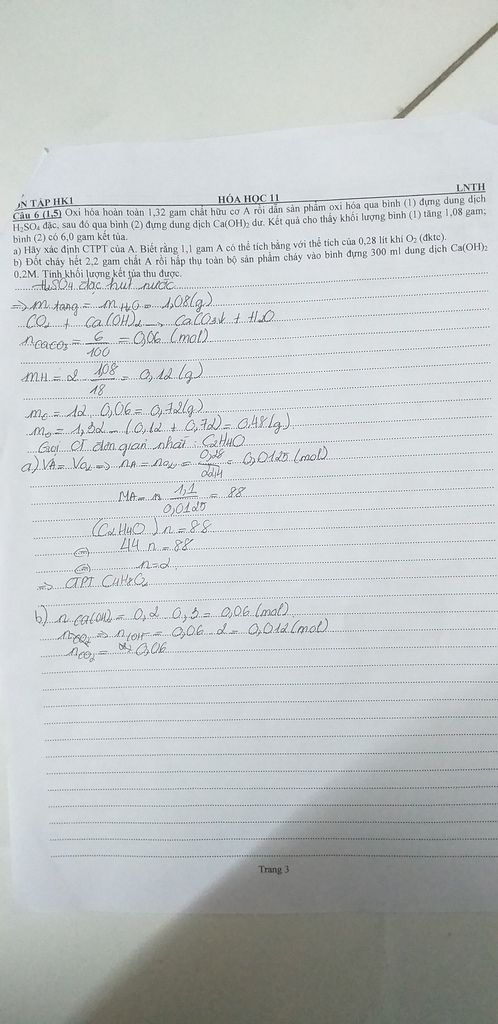 ÔN TẬP HK1 HÓA HỌC 11 LNTH
Câu 6 (1,5) Oxi hóa hoàn toàn 1,32 gam chất hữu cơ A rồi dẫn sản phẩm oxi hóa qua bình (1) đựng dung dịch
H₂SO₄ đặc, sau đó qua bình (2) đựng dung dịch Ca(OH)₂ dư. Kết quả cho thấy khối lượng bình (1) tăng 1,08 gam;
bình (2) có 6,0 gam kết tủa.
a) Hãy xác định CTPT của A. Biết rằng 1,1 gam A có thể tích bằng với thể tích của 0,28 lít khí O₂ (đktc).
b) Đốt cháy hết 2,2 gam chất A rồi hấp thụ toàn bộ sản phẩm cháy vào bình đựng 300 ml dung dịch Ca(OH)₂
0,2M. Tính khối lượng kết tủa thu được.
H₂SO₄ đặc hút nước
=> m tăng = m H₂O = 1,08 (g)
CO₂ + Ca(OH)₂ → CaCO₃↓ + H₂O
n CaCO₃ = 6/100 = 0,06 (mol)
mH = 2 . 1,08/18 = 0,12 (g)
mC = 12 . 0,06 = 0,72 (g)
mO = 1,32 - (0,12 + 0,72) = 0,48 (g)
Gọi CT đơn giản nhất : C₂H₄O
a) VA = VO₂ => nA = nO₂ = 0,28/22,4 = 0,0125 (mol)
MA = 1,1/0,0125 = 88
(C₂H₄O)n = 88
44 n = 88
n = 2
=> CTPT C₄H₈O₂
b) n Ca(OH)₂ = 0,2 . 0,3 = 0,06 (mol)
=> nOH⁻ = 0,06 . 2 = 0,012 (mol)
nCO₂ = 0,06
Trang 3